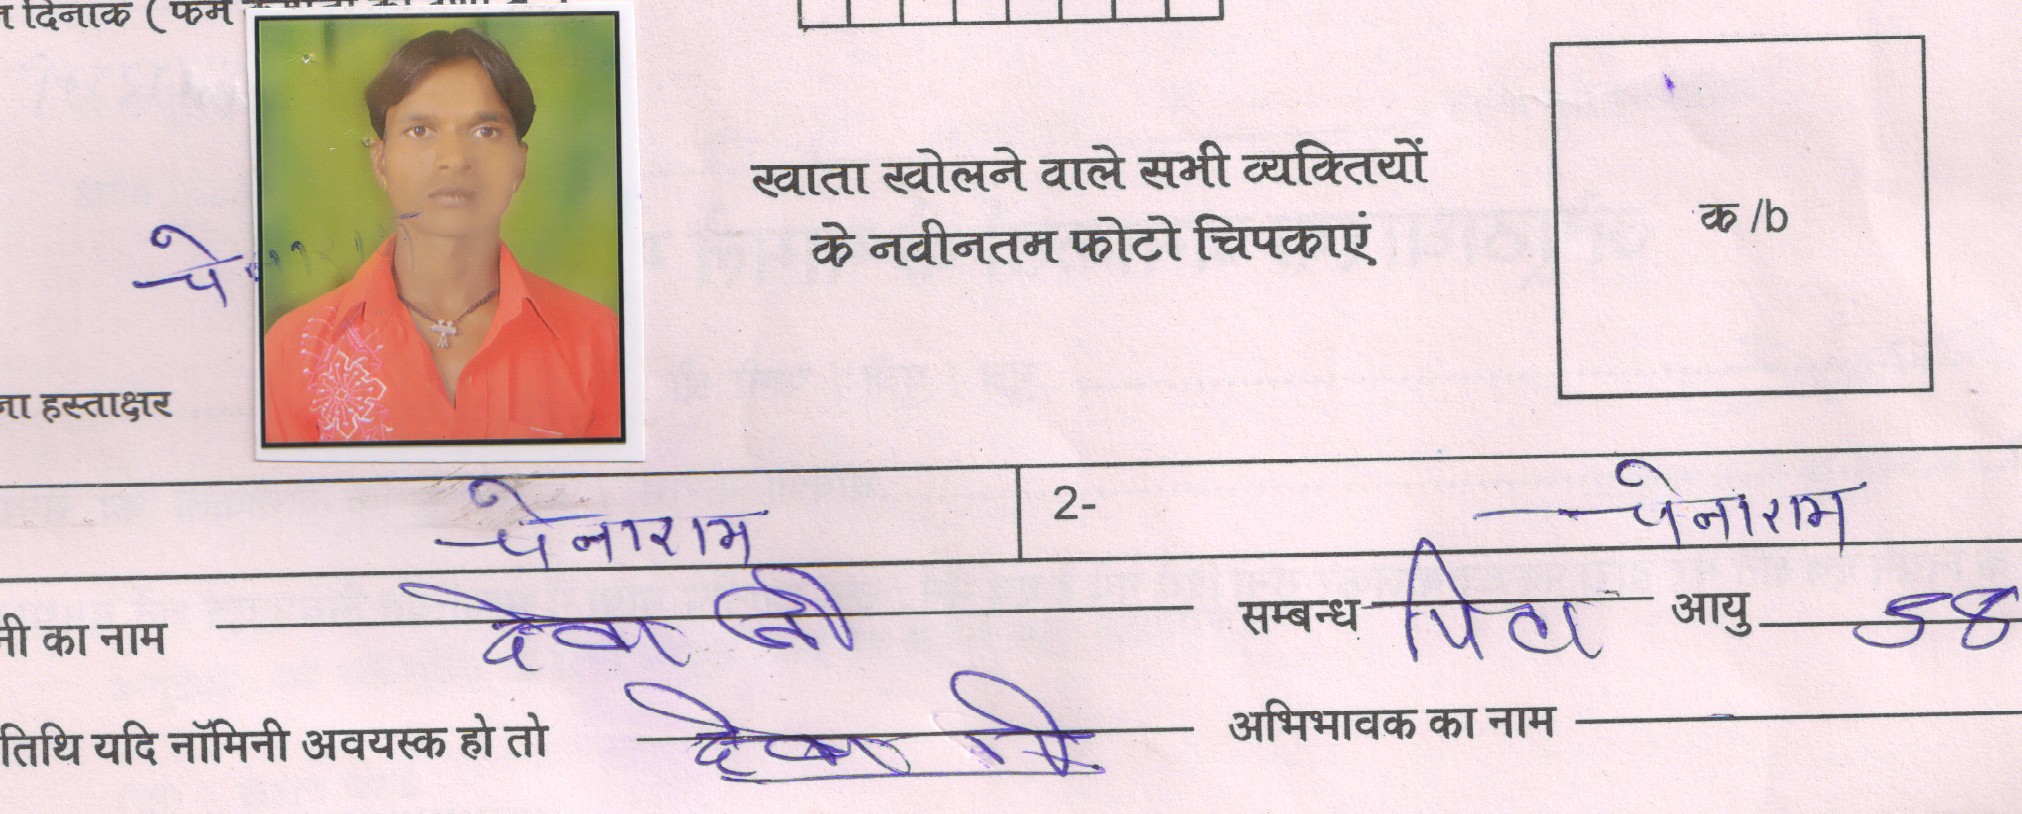 दिनांक ( फर्म
खाता खोलने वाले सभी व्यक्तियों
के नवीनतम फोटो चिपकाएं
क /b
चे
हस्ताक्षर
चेनाराम 2- चेनाराम
का नाम देवा जी सम्बन्ध पिता आयु 58
तिथि यदि नॉमिनी अवयस्क हो तो देवा जी अभिभावक का नाम